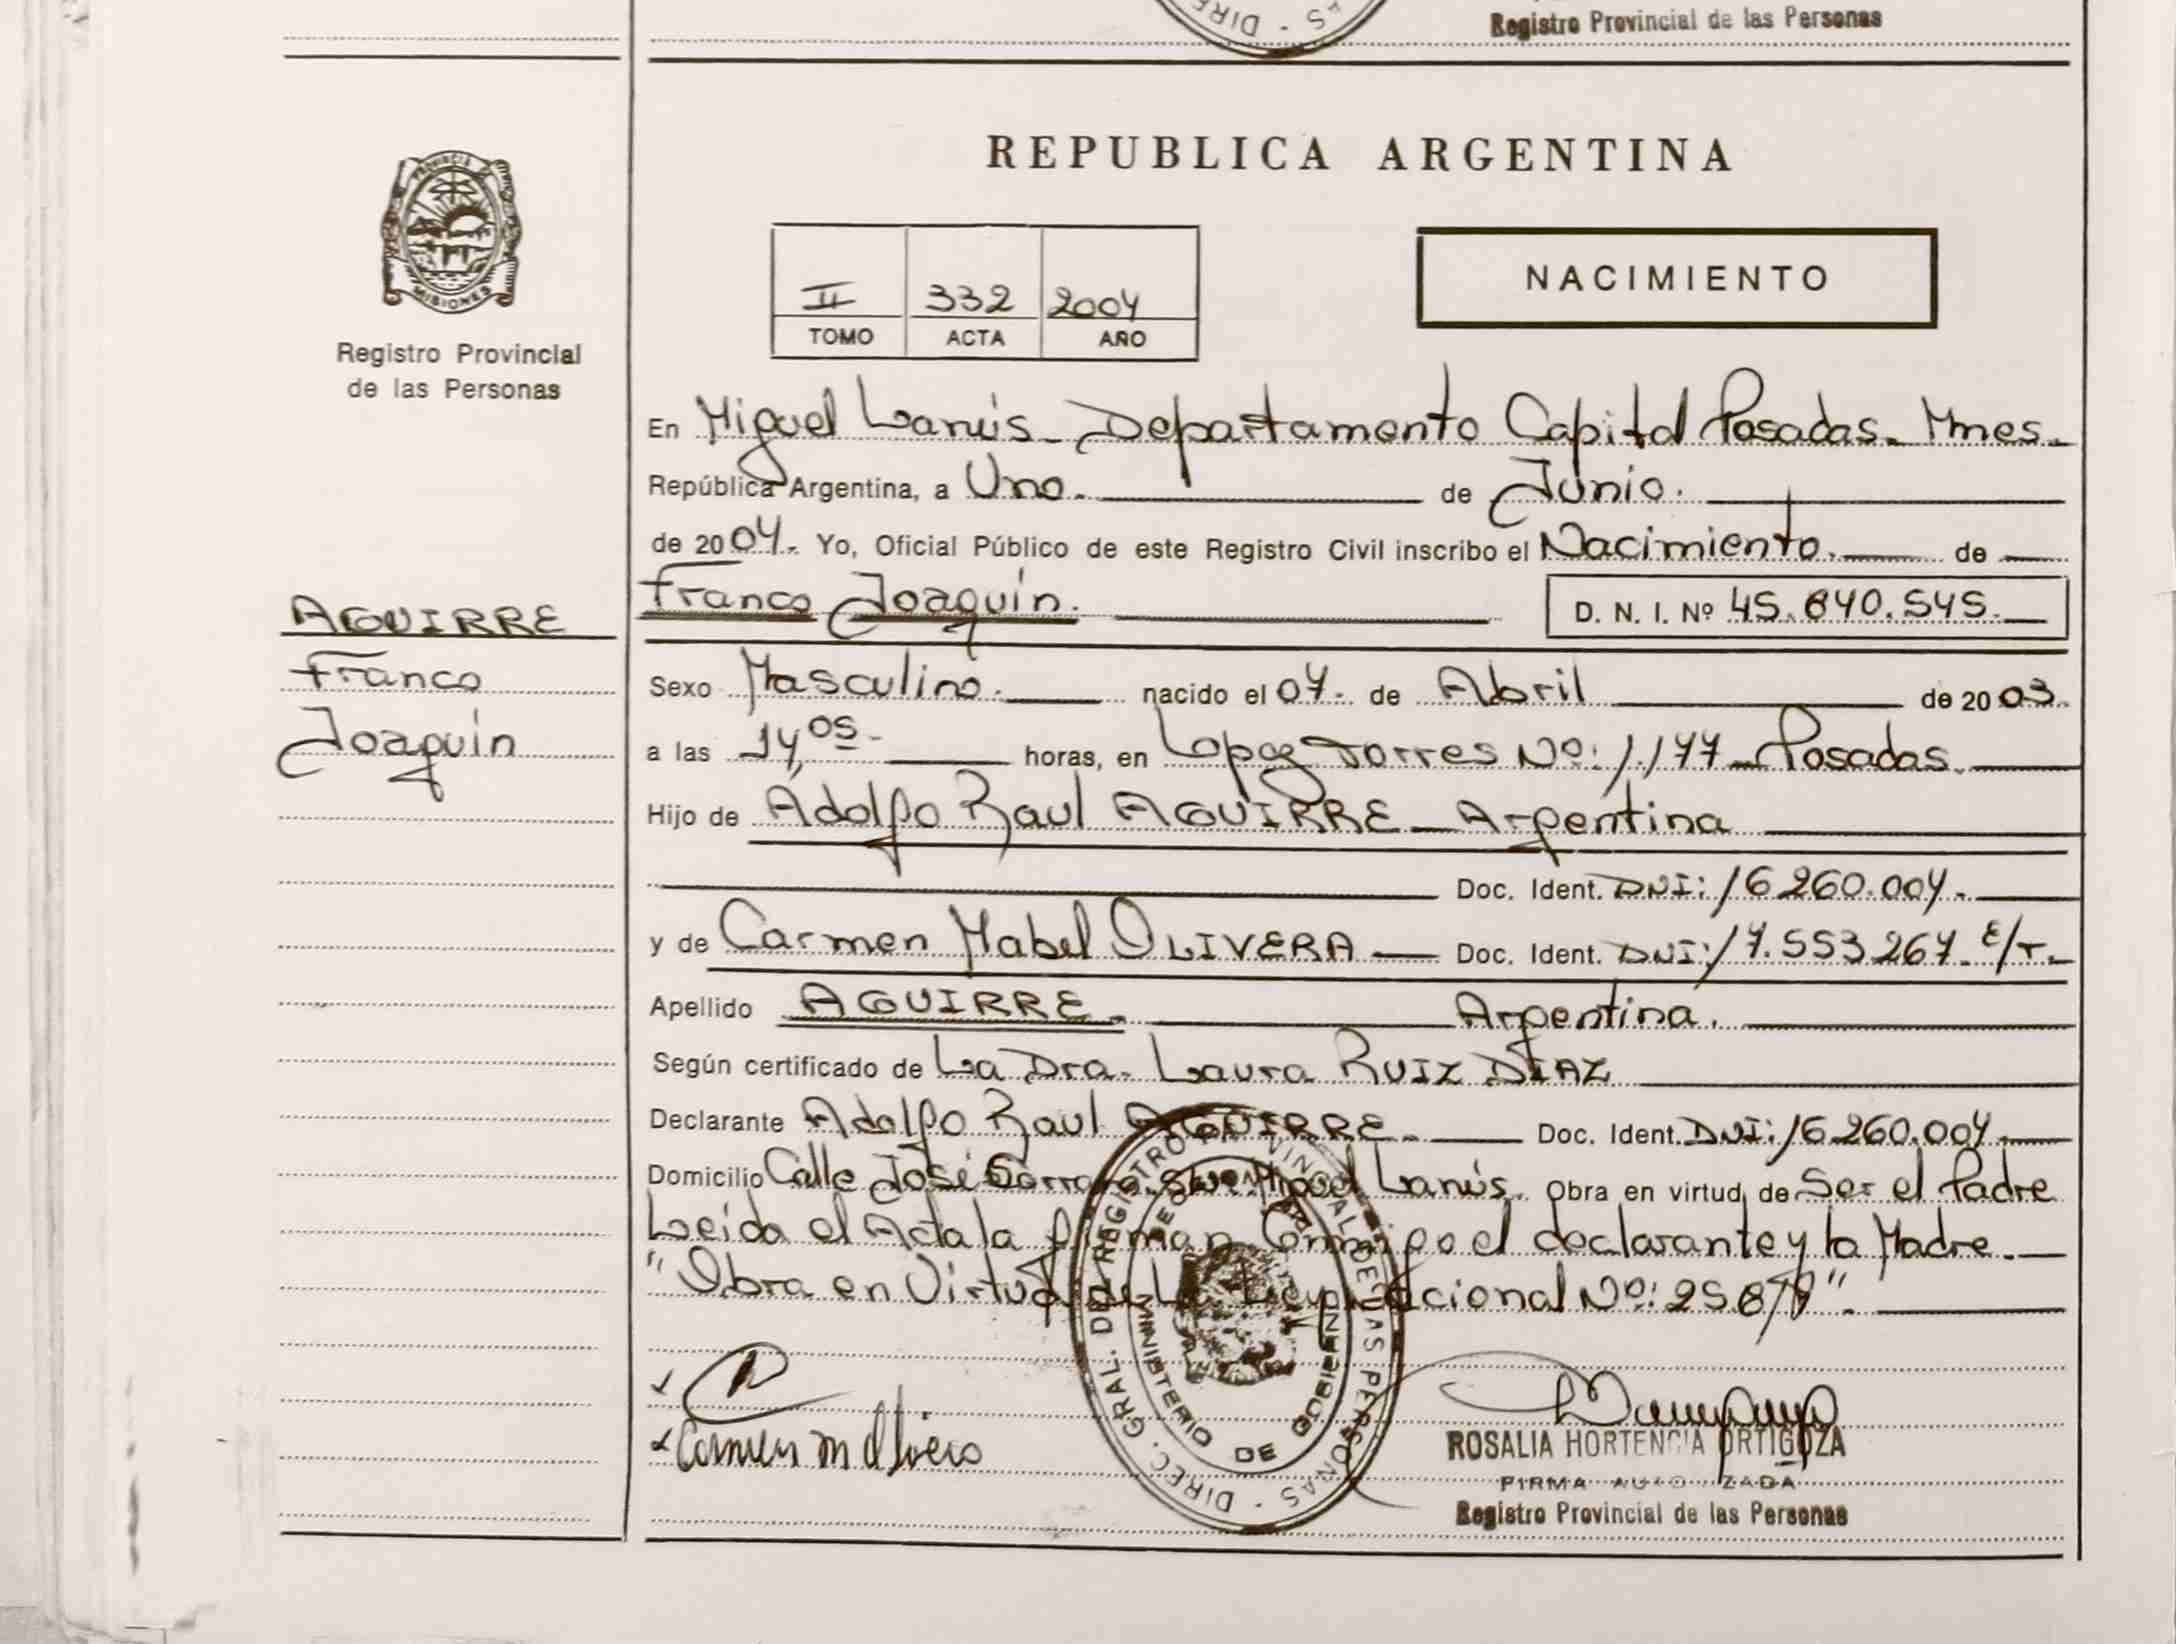 Registro Provincial de las Personas
REPUBLICA ARGENTINA
PROVINCIA
MISIONES
Registro Provincial
de las Personas
II 332 2004
TOMO ACTA AÑO
NACIMIENTO
En Miguel Lanús - Departamento Capital Posadas - Mnes -
República Argentina, a Uno. de Junio.
de 2004. Yo, Oficial Público de este Registro Civil inscribo el Nacimiento. de
Franco Joaquín. D. N. I. Nº 45.840.545.
AGUIRRE
Franco
Joaquín
Sexo Masculino. nacido el 07. de Abril de 2003.
a las 14,05 - horas, en Lopez Torres Nº: 1.177 - Posadas.
Hijo de Adolfo Raul AGUIRRE - Argentina
Doc. Ident. DNI: 16.260.004.
y de Carmen Mabel OLIVERA - Doc. Ident. DNI: 17.553.267. E/T. -
Apellido AGUIRRE. Argentina.
Según certificado de La Dra. Laura RUIZ DIAZ
Declarante Adolfo Raul AGUIRRE. Doc. Ident. DNI: 16.260.004.
Domicilio Calle José Miguel Lanús. Obra en virtud de Ser el Padre
Leida el Acta la firman Conmigo el declarante y la Madre. -
"Obra en Virtud de La Ley Nacional Nº: 25.
Carmen M Olivera
DIREC. GRAL. DEL REGISTRO PROVINCIAL DE LAS PERSONAS
MINISTERIO DE GOBIERNO
ROSALIA HORTENCIA ORTIGOZA
FIRMA AUTORIZADA
Registro Provincial de las Personas